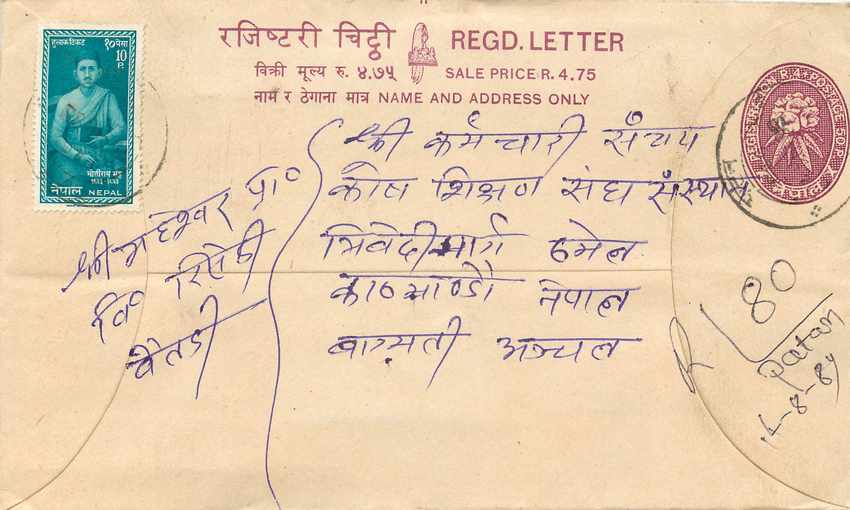 हुलाक टिकट १० पैसा
10 P.
मोतीराम भट्ट
नेपाल NEPAL
रजिष्टरी चिट्ठी REGD. LETTER
विक्री मूल्य रु. ४.७५ SALE PRICE R. 4.75
नाम र ठेगाना मात्र NAME AND ADDRESS ONLY
REGISTRATION POSTAGE
नेपाल
श्री कर्मचारी संचय
कोष शिक्षण संघ संस्थान
त्रिवेदीमार्ग ठमेल
काठमाण्डौ नेपाल
वाग्मती अञ्चल
श्री महेश्वर प्रा०
वि०
बैतडी
R 80
Patan
-8-84